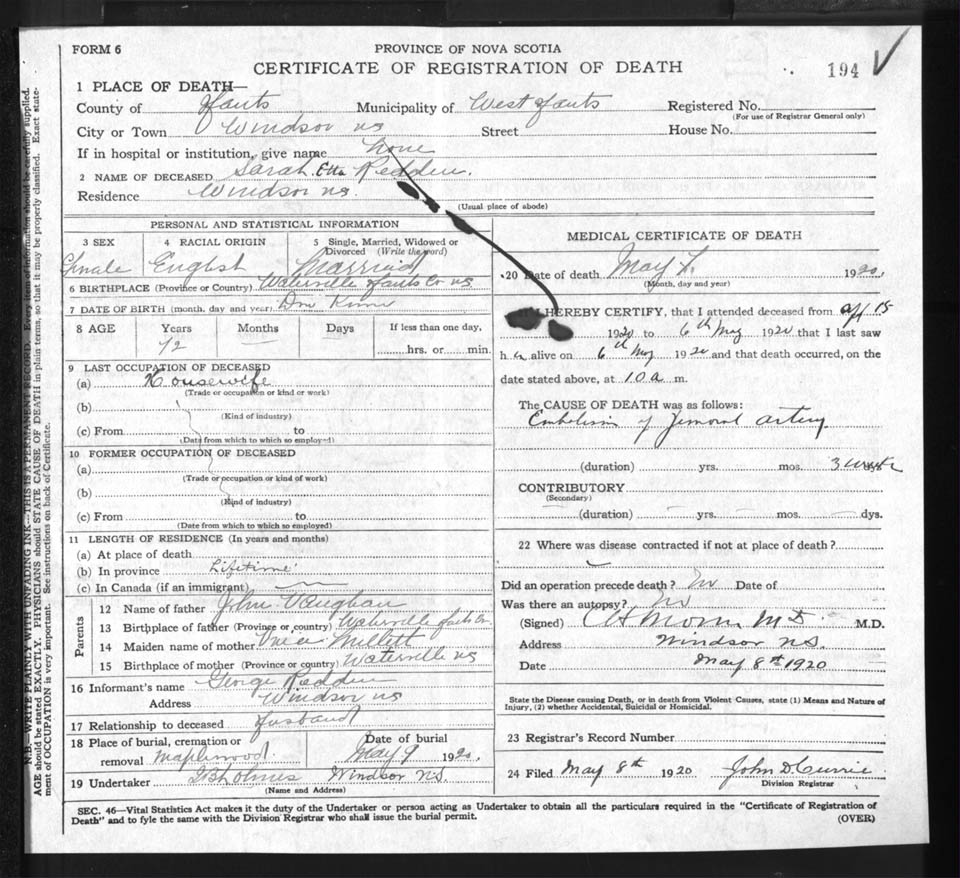 FORM 6
PROVINCE OF NOVA SCOTIA
CERTIFICATE OF REGISTRATION OF DEATH
194
1 PLACE OF DEATH—
County of Hants Municipality of West Hants Registered No.
(For use of Registrar General only)
City or Town Windsor NS Street House No.
If in hospital or institution, give name home
2 NAME OF DECEASED Sarah Etta Redden.
Residence Windsor NS.
(Usual place of abode)
PERSONAL AND STATISTICAL INFORMATION
3 SEX 4 RACIAL ORIGIN 5 Single, Married, Widowed or Divorced (Write the word)
Female English Married
6 BIRTHPLACE (Province or Country) Waterville Hants Co NS
7 DATE OF BIRTH (month, day and year) Don Know
8 AGE Years Months Days If less than one day,
72 hrs. or min.
9 LAST OCCUPATION OF DECEASED
(a) Housewife
(Trade or occupation or kind or work)
(b)
(Kind of industry)
(c) From to
(Date from which to which so employed)
10 FORMER OCCUPATION OF DECEASED
(a)
(Trade or occupation or kind of work)
(b)
(Kind of industry)
(c) From to
(Date from which to which so employed)
11 LENGTH OF RESIDENCE (In years and months)
(a) At place of death
(b) In province Lifetime
(c) In Canada (if an immigrant)
Parents
12 Name of father John Vaughan
13 Birthplace of father (Province or country) Waterville Hants Co.
14 Maiden name of mother Millett
15 Birthplace of mother (Province or country) Waterville NS
16 Informant's name George Redden
Address Windsor NS
17 Relationship to deceased Husband
18 Place of burial, cremation or removal Maplewood Date of burial May 9 1920.
19 Undertaker Holmes Windsor NS.
(Name and Address)
MEDICAL CERTIFICATE OF DEATH
20 Date of death May 1920.
(Month, day and year)
I HEREBY CERTIFY, that I attended deceased from Apl 15
1920 to 6th May 1920 that I last saw
h er alive on 6th May 1920 and that death occurred, on the
date stated above, at 10 a m.
The CAUSE OF DEATH was as follows:
Embolism of femoral artery
(duration) yrs. mos. 3 weeks
CONTRIBUTORY
(Secondary)
(duration) yrs. mos. dys.
22 Where was disease contracted if not at place of death?
Did an operation precede death? No Date of
Was there an autopsy? No
(Signed) M.D. M.D.
Address Windsor NS.
Date May 8th 1920
State the Disease causing Death, or in death from Violent Causes, state (1) Means and Nature of
Injury, (2) whether Accidental, Suicidal or Homicidal.
23 Registrar's Record Number
24 Filed May 8th 1920 John D Currie
Division Registrar
SEC. 46—Vital Statistics Act makes it the duty of the Undertaker or person acting as Undertaker to obtain all the particulars required in the "Certificate of Registration of
Death" and to fyle the same with the Division Registrar who shall issue the burial permit. (OVER)
N.B. WRITE PLAINLY WITH UNFADING INK—THIS IS A PERMANENT RECORD. Every item of information should be carefully supplied.
AGE should be stated EXACTLY. PHYSICIANS should STATE CAUSE OF DEATH in plain terms, so that it may be properly classified. Exact state-
ment of OCCUPATION is very important. See instructions on back of Certificate.